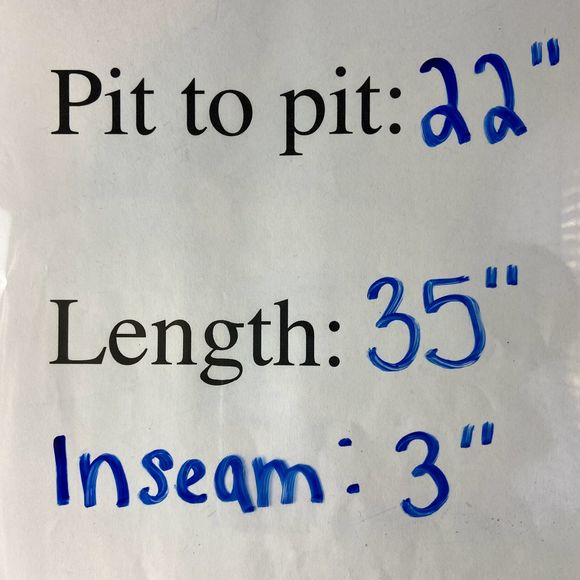 Pit to pit: 22"
Length: 35"
Inseam: 3"